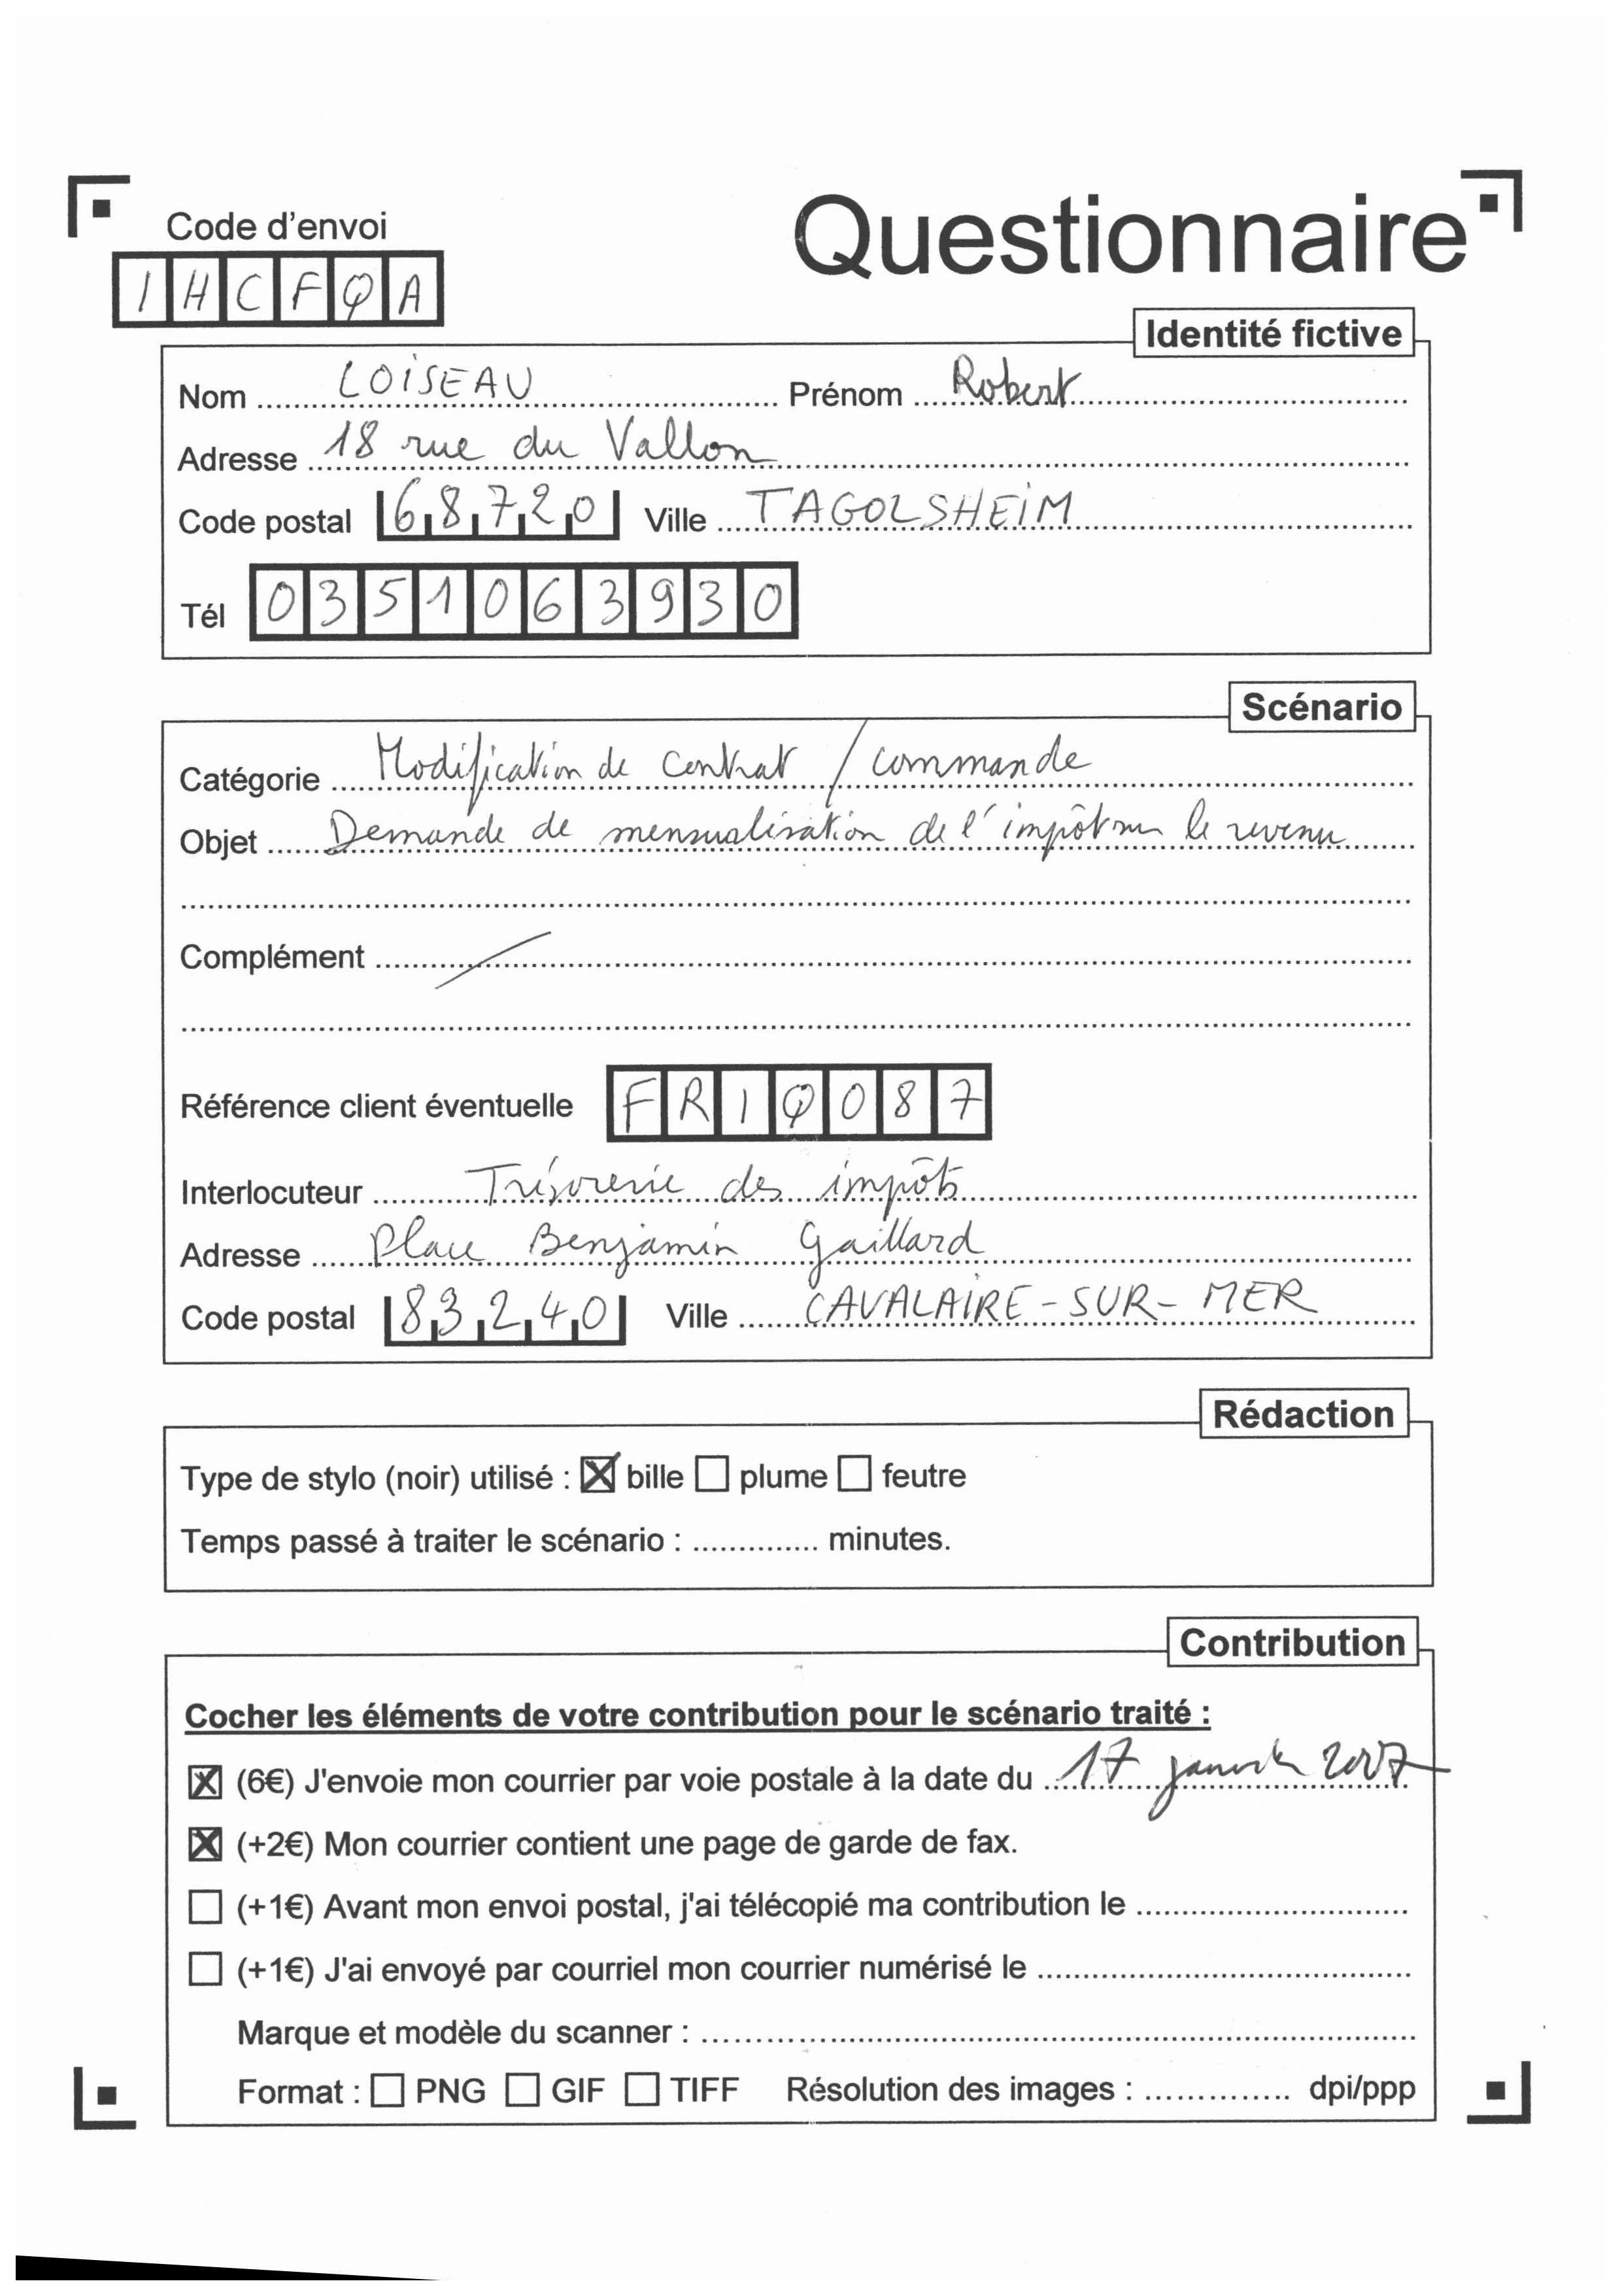 Code d'envoi
Questionnaire
IHCFQA
Identité fictive
Nom LOISEAU Prénom Robert
Adresse 18 rue du Vallon
Code postal 68720 Ville TAGOLSHEIM
Tél 0351063930
Scénario
Catégorie Modification de contrat / commande
Objet Demande de mensualisation de l'impôt sur le revenu
Complément /
Référence client éventuelle FRIQ087
Interlocuteur Trésorerie des impôts
Adresse Place Benjamin Gaillard
Code postal 83240 Ville CAVALAIRE-SUR-MER
Rédaction
Type de stylo (noir) utilisé : ☒ bille ☐ plume ☐ feutre
Temps passé à traiter le scénario : .............. minutes.
Contribution
Cocher les éléments de votre contribution pour le scénario traité :
☒ (6€) J'envoie mon courrier par voie postale à la date du 17 janvier 2007
☒ (+2€) Mon courrier contient une page de garde de fax.
☐ (+1€) Avant mon envoi postal, j'ai télécopié ma contribution le ..............................
☐ (+1€) J'ai envoyé par courriel mon courrier numérisé le ..........................................
Marque et modèle du scanner : ................................................................................
Format : ☐ PNG ☐ GIF ☐ TIFF Résolution des images : .............. dpi/ppp